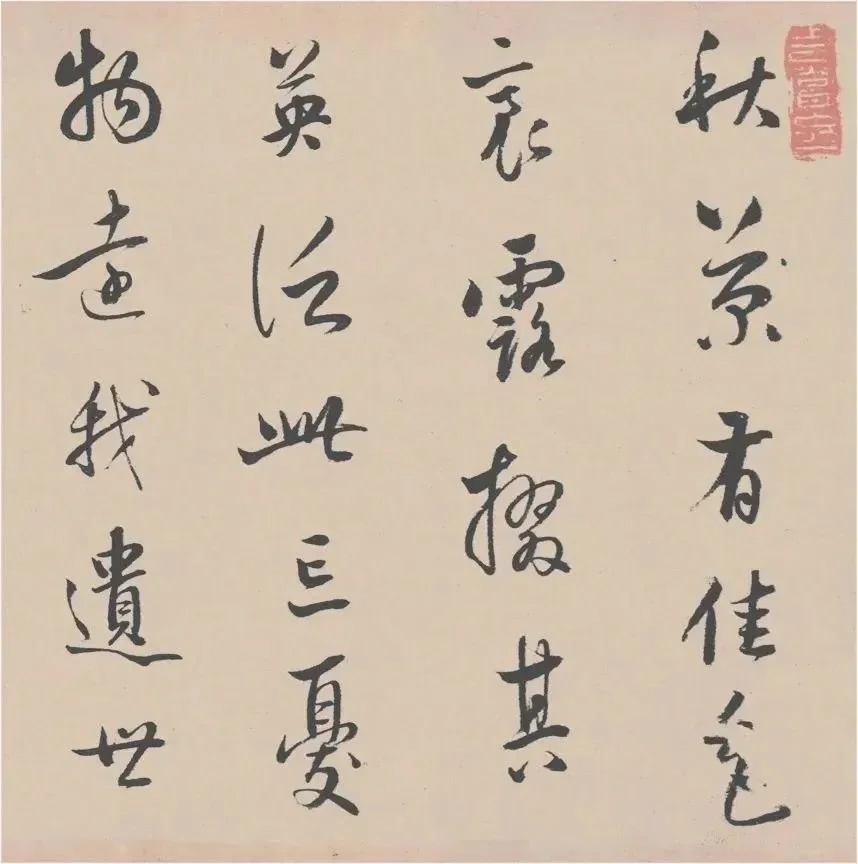 玄賞齋
秋菊有佳色
裛露掇其
英泛此忘憂
物遠我遺世